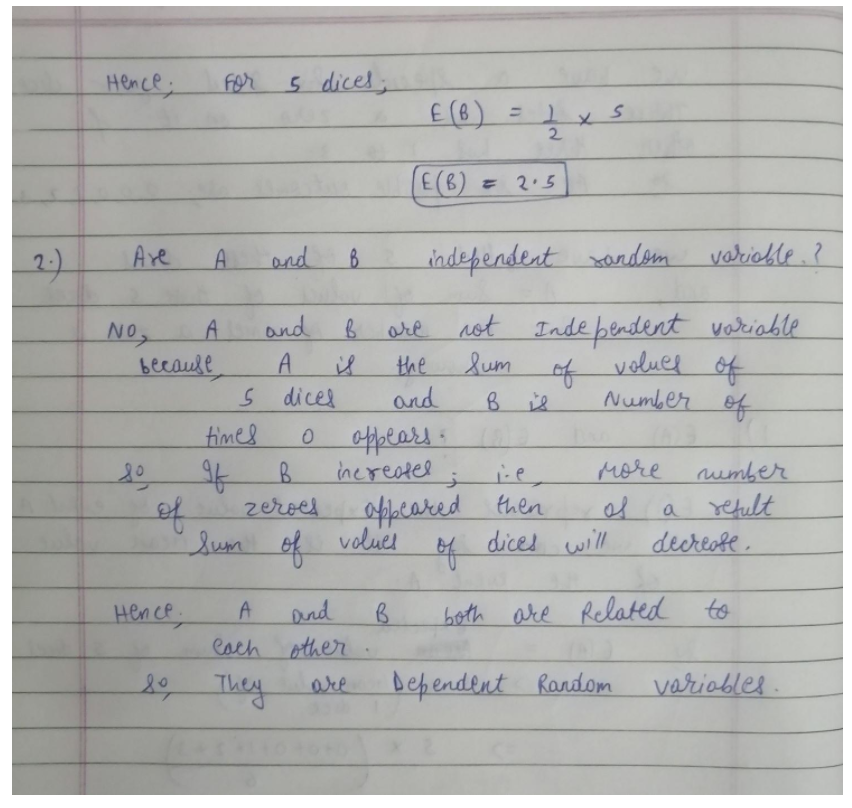 Hence; For 5 dices;
E(B) = 1/2 × 5
E(B) = 2.5
2.) Are A and B independent random variable.?
NO, A and B are not Independent variable
because, A is the sum of values of
5 dices and B is Number of
times 0 appears.
So, If B increases; i.e, More number
of zeroes appeared then as a result
sum of values of dices will decrease.
Hence, A and B both are Related to
each other.
So, They are Dependent Random variables.